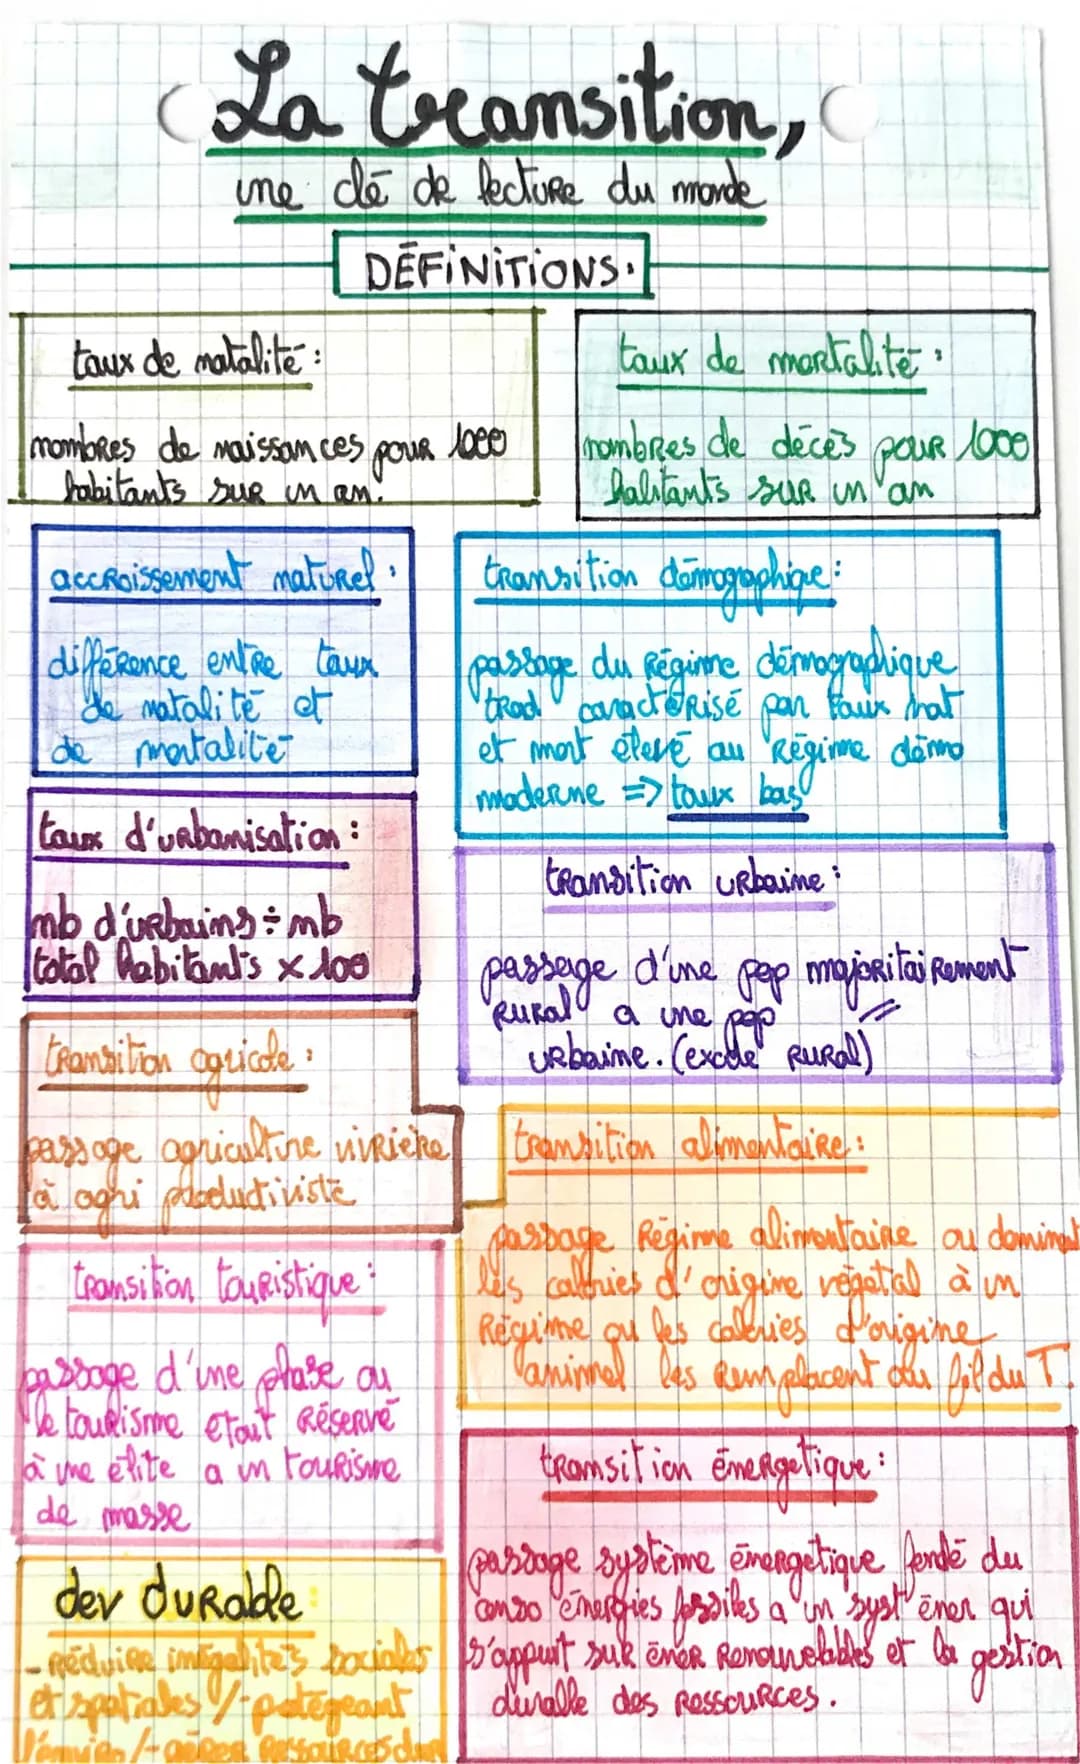 La transition,
une clé de lecture du monde
DÉFINITIONS.
taux de natalité :
nombres de naissances pour 1000
habitants sur un an.
taux de mortalité :
nombres de décès pour 1000
habitants sur un an
accroissement naturel :
différence entre taux
de natalité et
de mortalité
transition démographique :
passage du régime démographique
trad caractérisé par taux nat
et mort élevé au régime démo
moderne => taux bas
taux d'urbanisation :
nb d'urbains ÷ nb
total habitants x 100
transition urbaine :
passage d'une pop majoritairement
rural a une pop
urbaine. (exode rural)
transition agricole :
passage agriculture vivrière
à agri productiviste
transition alimentaire :
passage régime alimentaire ou dominent
les calories d'origine végétal à un
régime ou les calories d'origine
animal les remplacent au fil du T.
transition touristique :
passage d'une phase ou
le tourisme etait réservé
à une élite a un tourisme
de masse
transition énergetique :
passage système énergetique fondé du
conso énergies fossiles a un syst éner qui
s'appuit sur éner renouvelables et la gestion
durable des ressources.
dev durable :
- réduire inégalités sociales
et spatiales /- protégeant
l'enviro /- gérer ressources